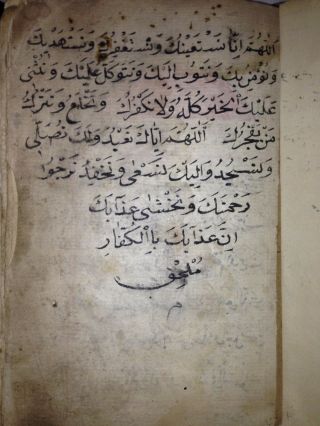 اللهم انا نستعينك ونستغفرك ونستهديك
ونؤمن بك ونتوب اليك ونتوكل عليك ونثني
عليك الخير كله ولا نكفرك ونخلع ونترك
من يفجرك اللهم اياك نعبد ولك نصلي
ونسجد واليك نسعى ونحفد نرجوا
رحمتك ونخشى عذابك
ان عذابك باالكفار
ملحق
م